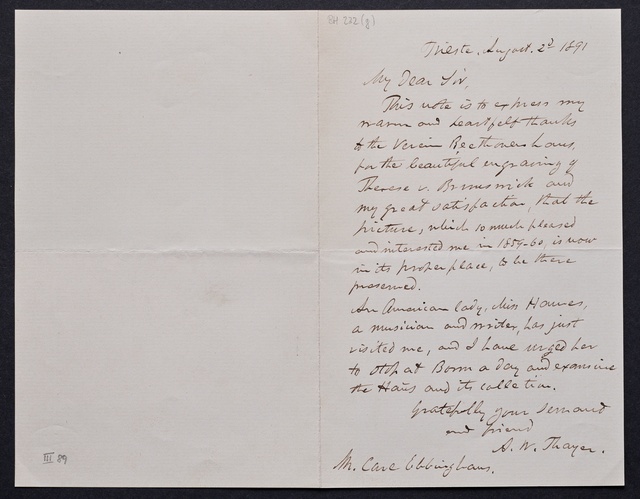 BH 232 (g)
Trieste, August. 2d 1891
My Dear Sir,
This note is to express my
warm and heartfelt thanks
to the Verein Beethovens haus
for the beautiful engraving of
Therese v. Brunswick and
my great satisfaction, that the
picture, which so much pleased
and interested me in 1859-60, is now
in its proper place, to be there
preserved.
An American lady, Miss Hawes,
a musician and writer, has just
visited me, and I have urged her
to stop at Bonn a day and examine
the Haus and its collection.
Gratefully your servant
and friend
A. W. Thayer.
Mr. Carl Ebbinghaus.
III 89